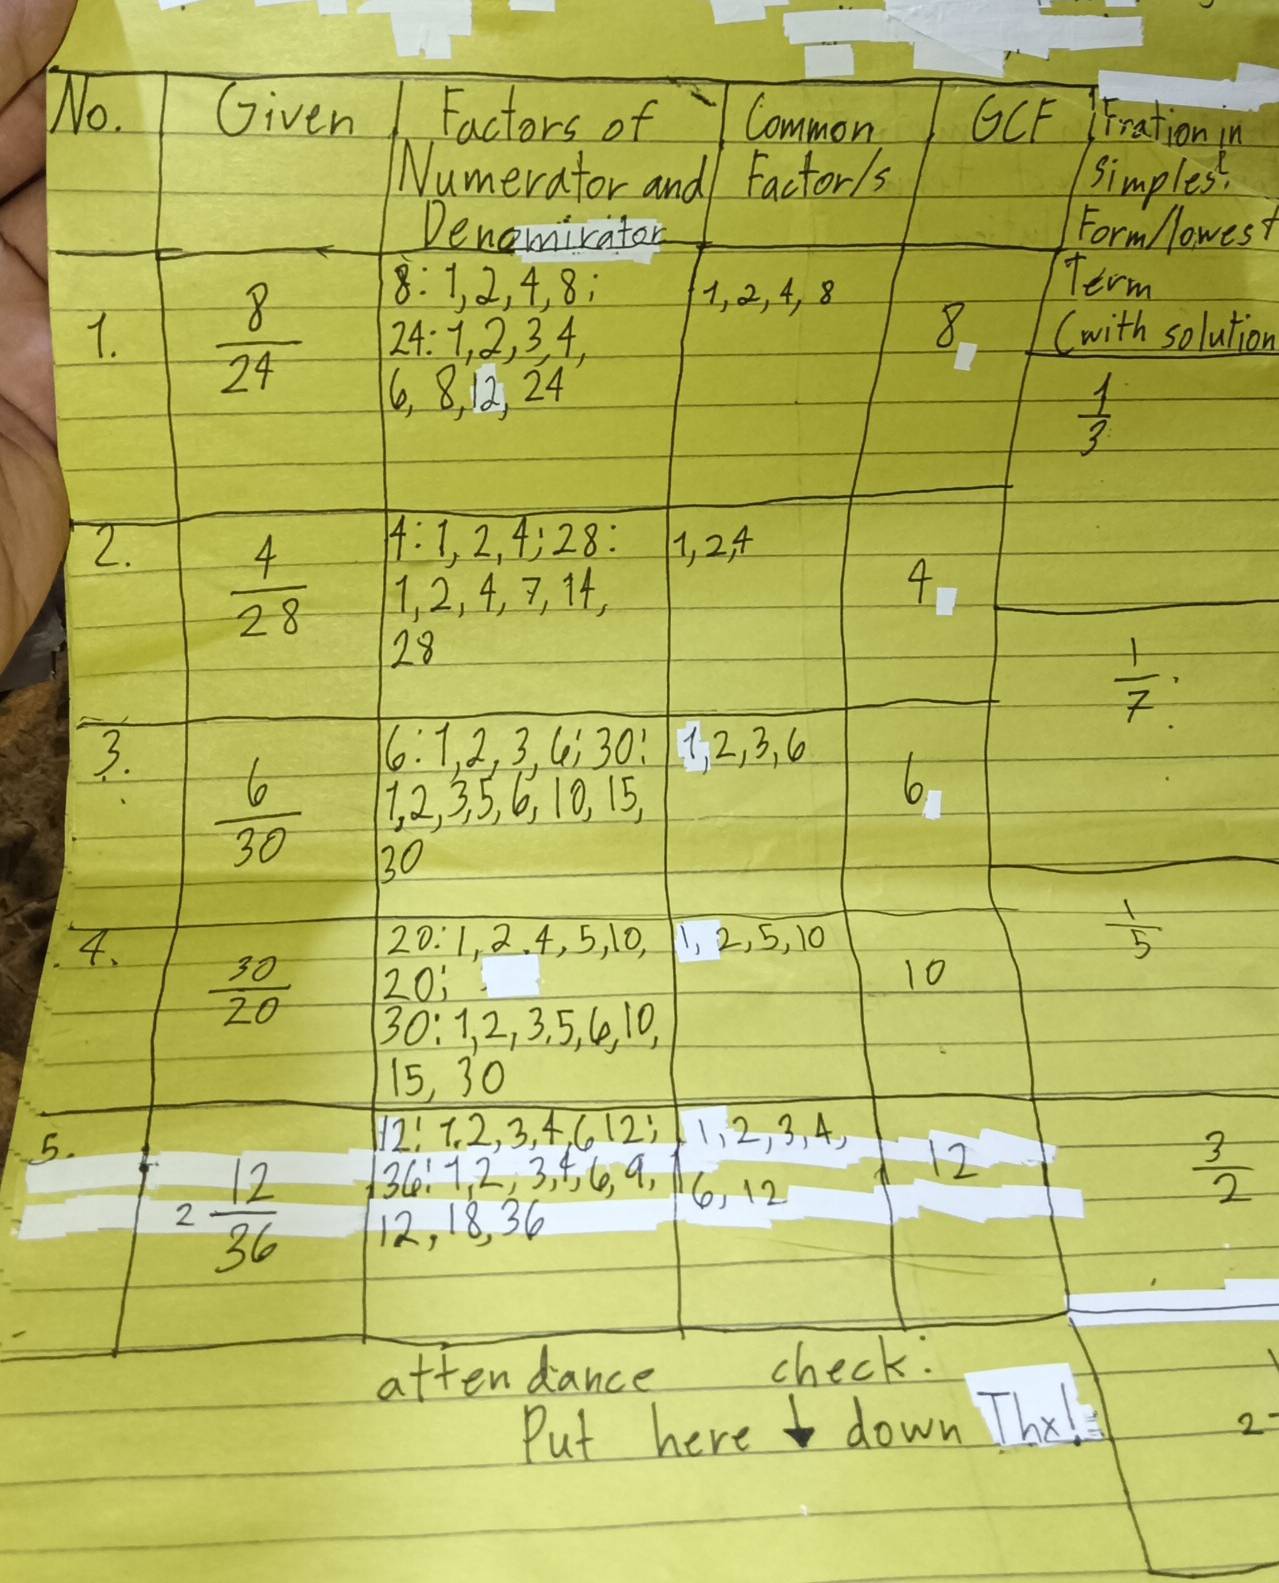 No.
Given
Factors of
Numerator and
Denomirator
Common
Factor/s
GCF
Fration in
simplest
Form/lowest
Term
(with solution
1.
8
24
8: 1, 2, 4, 8;
24: 1, 2, 3, 4,
6, 8, 12, 24
1, 2, 4, 8
8
1
3
2.
4
28
4: 1, 2, 4; 28:
1, 2, 4, 7, 14,
28
1, 2, 4
4
1
7
3.
6
30
6: 1, 2, 3, 6; 30:
1, 2, 3, 5, 6, 10, 15,
30
1, 2, 3, 6
6
1
5
4.
30
20
20: 1, 2, 4, 5, 10,
20;
30: 1, 2, 3, 5, 6, 10,
15, 30
1, 2, 5, 10
10
3
2
5.
2 12
36
12: 1, 2, 3, 4, 6 12;
36: 1, 2, 3, 4, 6, 9,
12, 18, 36
1, 2, 3, 4,
6, 12
12
2
attendance check:
Put here ↓ down Thx!